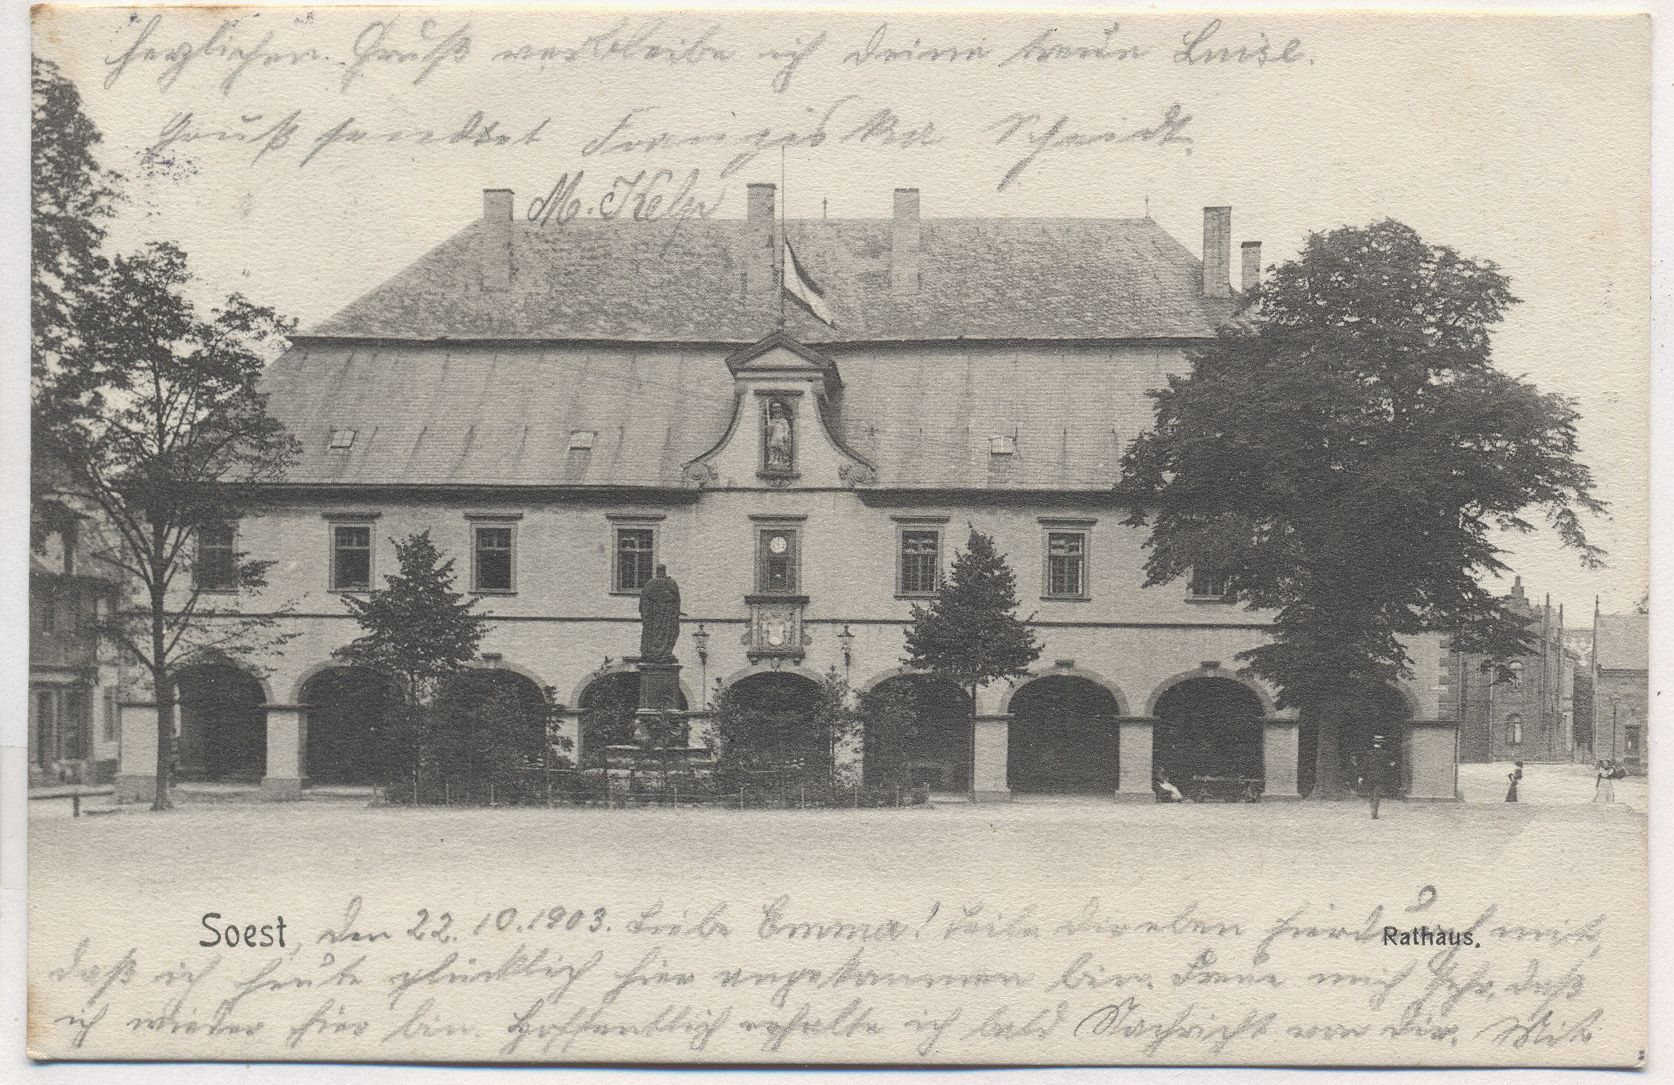 herzlichen Gruß verbleibe ich deine treue Luise.
Gruß sendet Franziska Scheidt.
M. Kelp
Soest, den 22.10.1903. Liebe Emma! Teile dir eben hierdurch mit,
Rathaus.
daß ich heute glücklich hier angekommen bin. Freue mich sehr, daß
ich wieder hier bin. Hoffentlich erhalte ich bald Nachricht von dir. Mit